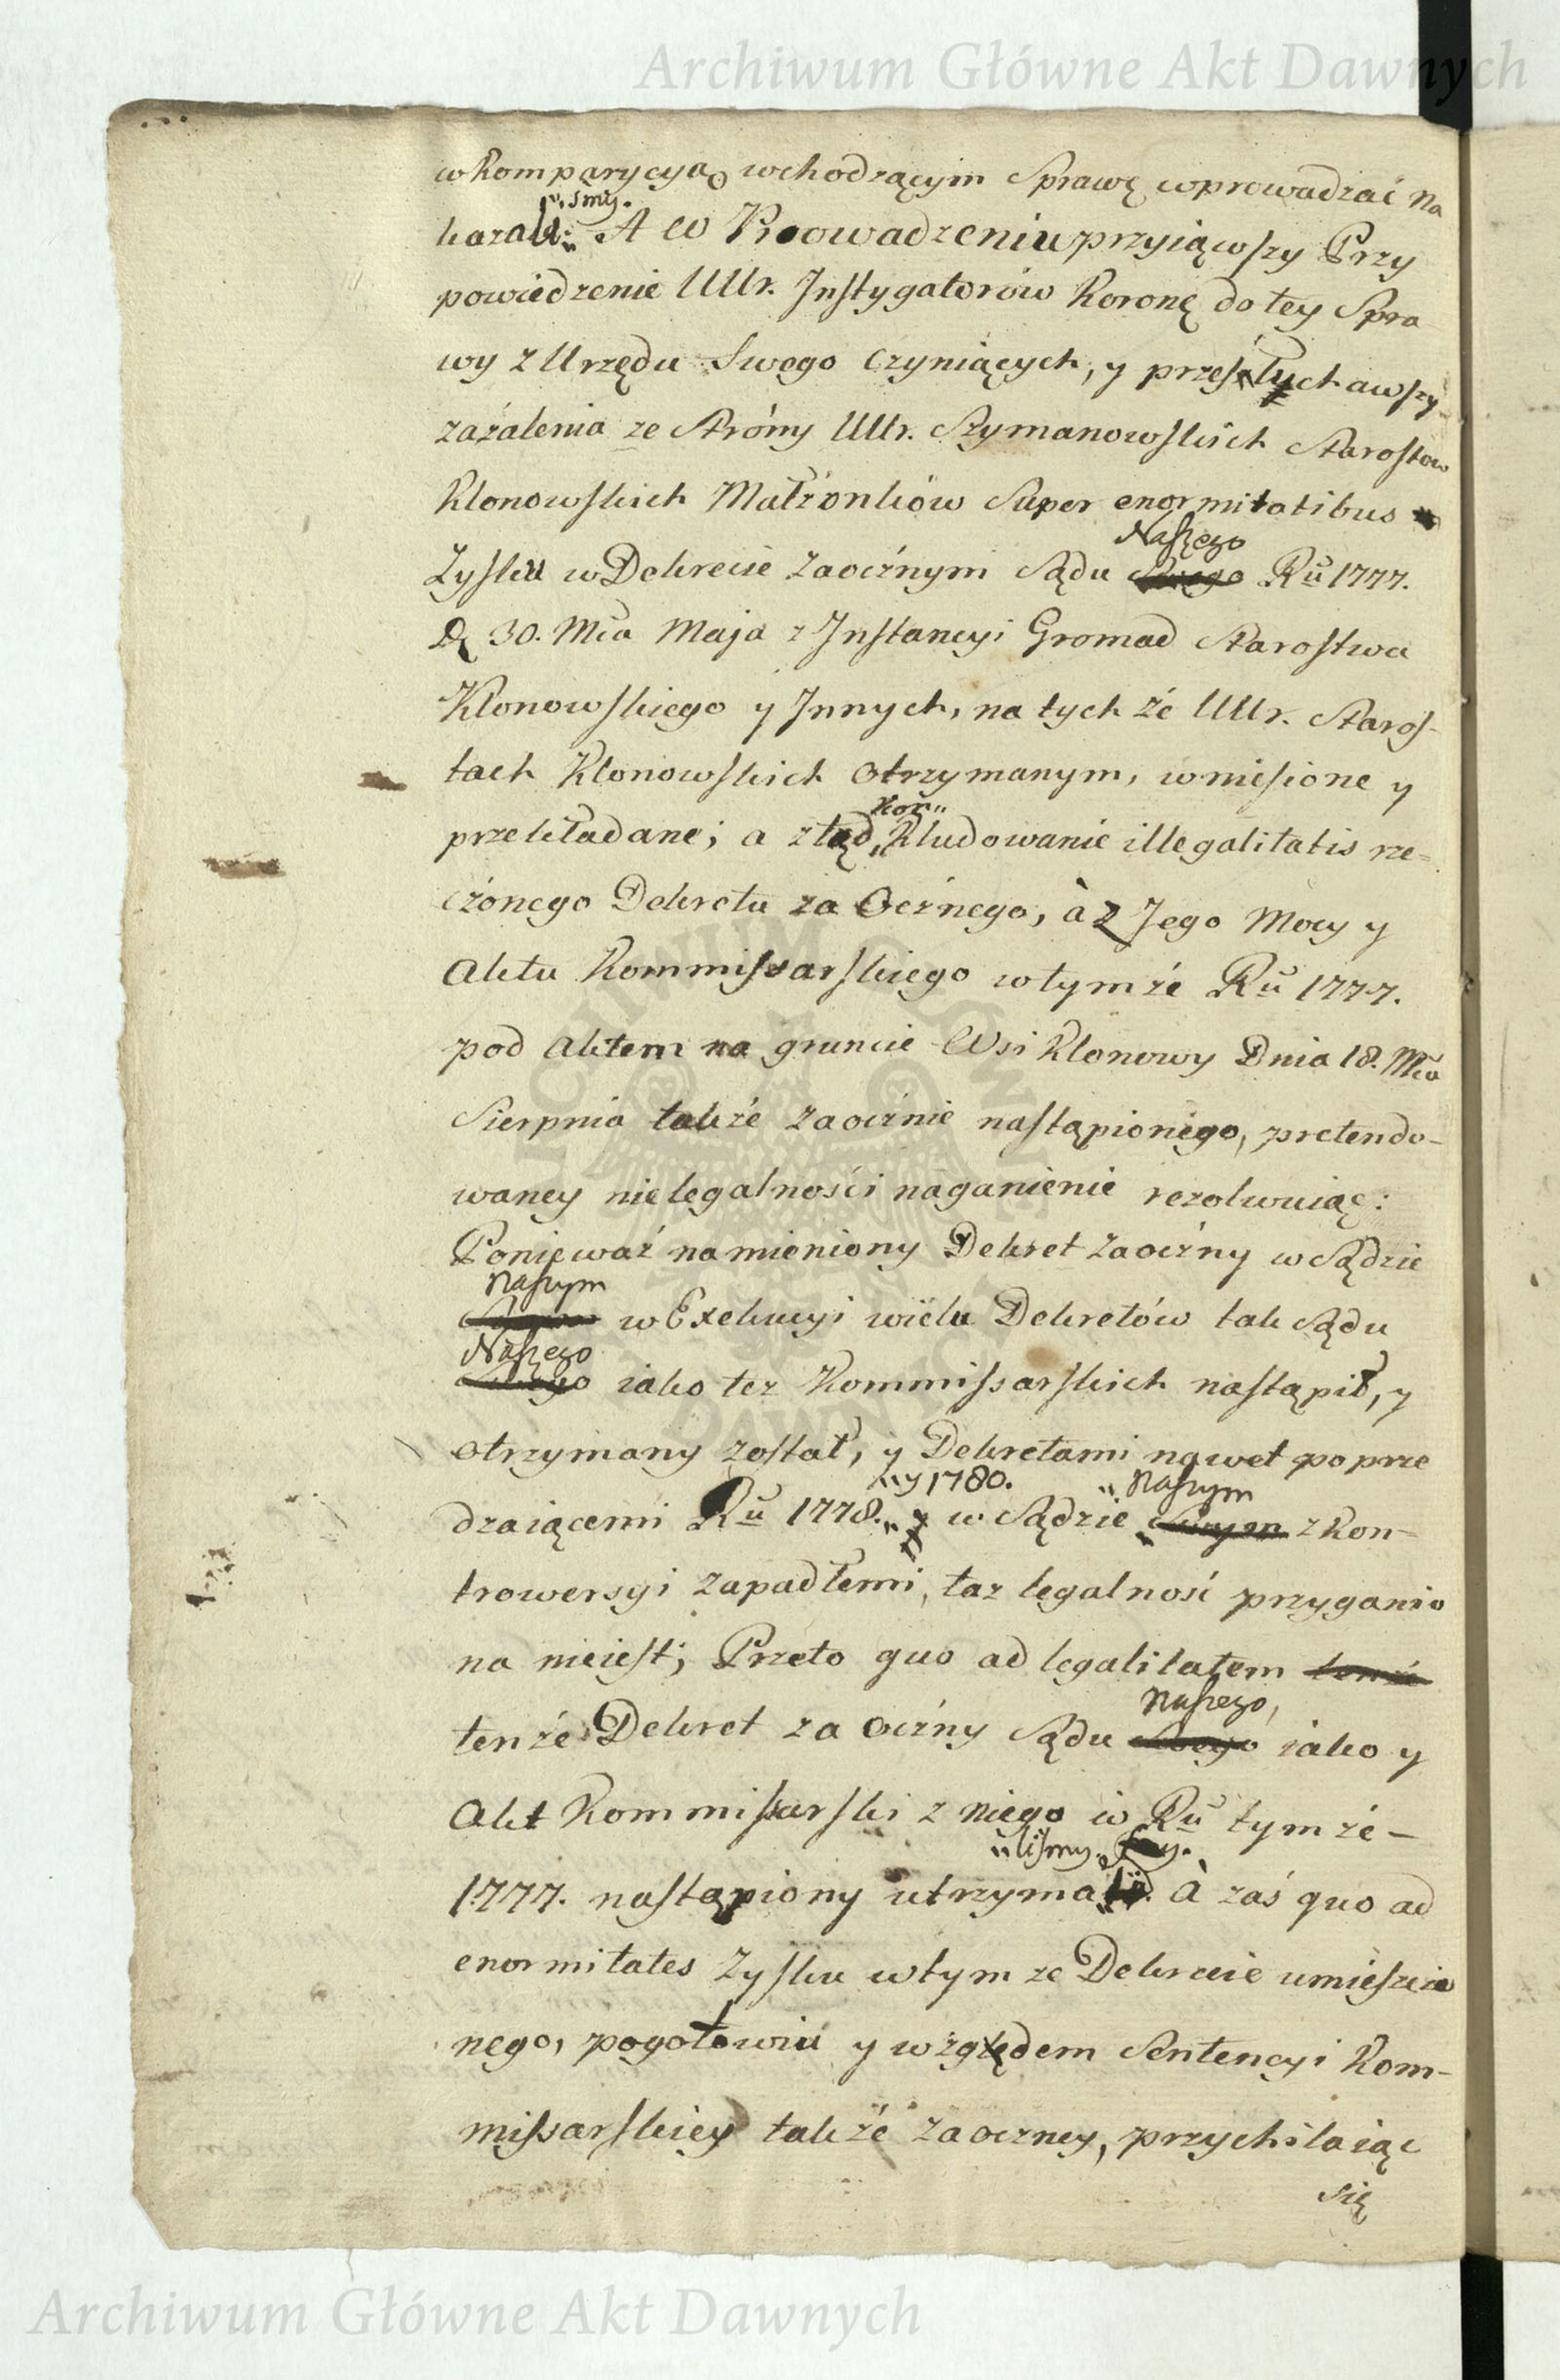 Archiwum Główne Akt Dawnych
w Komparycyą wchodzącym Sprawę wprowadzać na
"smy.
kazali: A w Prowadzeniu przyiąwszy Przy
powiedzenie UUr. Instygatorów Koronę do tey Spra
wy z Urzędu Swego czyniących, y przesłuchawszy
zażalenia ze Stróny UUr. Szymanowskich Starostow
Klonowskich Małżonków Super enormitatibus
Naszego
Zysku w Dekrecie Zaocznym Sądu Swego Ru 1777.
D. 30. Mca Maja z Instancyi Gromad Starostwa
Klonowskiego y Jnnych, na tych że UUr. Staros-
tach Klonowskich otrzymanym, wniesione y
kon"
przekładane; a ztąd "kludowanie illegalitatis rze=
czónego Dekretu za Ocznego, à z Jego Mocy y
Aktu Kommissarskiego w tymże Ru 1777.
pod Aktem na gruncie Wsi Klonowy Dnia 18. Mca
Sierpnia także zaocznie nastąpionego, pretendo-
waney nielegalności naganienie rezolwuiąc:
Ponieważ namieniony Dekret zaoczny w Sądzie
naszym
w Exekucyi wielu Dekretów tak Sądu
Naszego
Swego iako tez Kommissarskich nastąpił, y
otrzymany został, y Dekretami nawet poprze
"y 1780. " naszym
dzaiącemi Ru 1778." w Sądzie Swym z Kon-
trowersyi zapadłemi, taz legalność przyganio
na nieiest; Przeto quo ad legalitatem tenże
naszego,
tenże Dekret za oczny Sądu Swego iako y
Akt Kommissarski z niego w Ru tymże –
"liśmy.
1777. nastąpiony utrzyma A zaś quo ad
enormitates Zysku w tym ze Dekrecie umieszczo
nego, pogotowiu y względem Sentencyi Kom-
missarskiey także zaoczney, przychilaiąc
się
Archiwum Główne Akt Dawnych